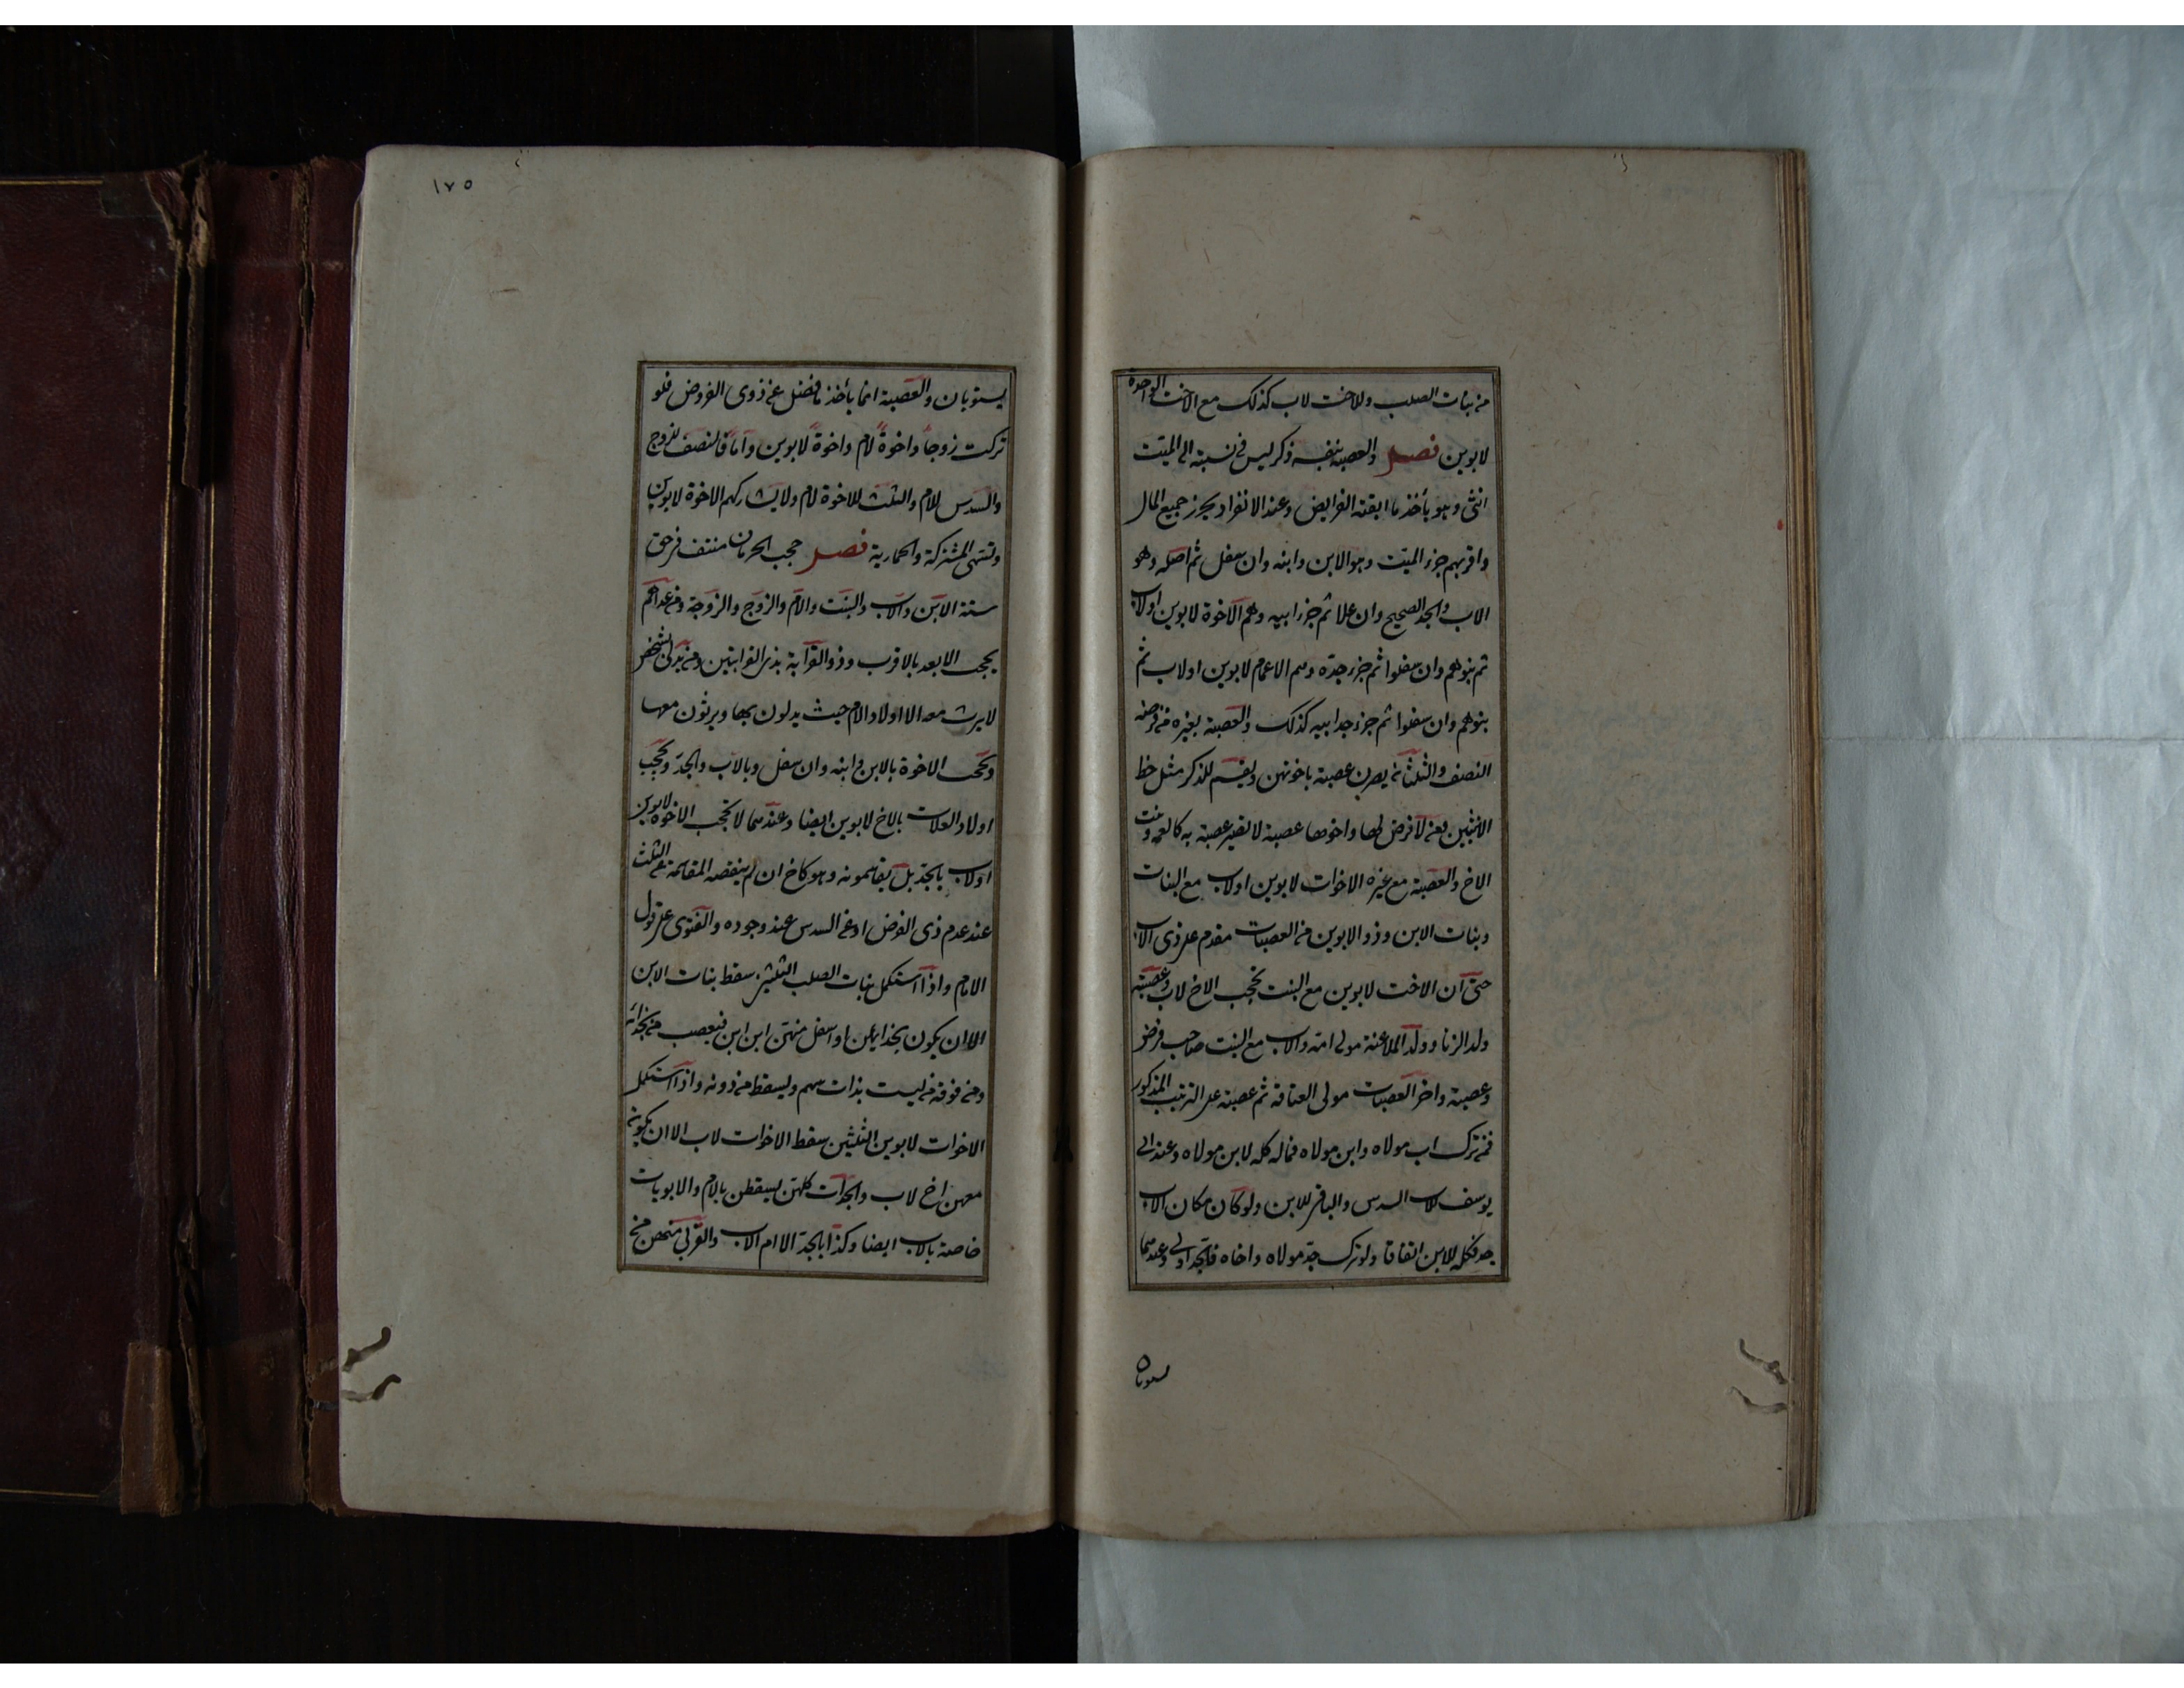 من بنات الصلب وللاخت لاب كذلك مع الاخت الواحدة
لابوين فصل والعصبة بنفسه ذكر ليس فى نسبته الى الميّت
انثى وهو يأخذ ما ابقته الفرايض وعند الانفراد يحرز جميع المال
واقربهم جزء الميّت وهو الابن وابنه وان سفل ثم اصله وهو
الاب والجد الصحيح وان علا ثم جزء ابيه وهم الاخوة لابوين اولاب
ثم بنوهم وان سفلوا ثم جزء جدّه وهم الاعمام لابوين اولاب ثم
بنوهم وان سفلوا ثم جزء جد ابيه كذلك والعصبة بغيره من فرضه
النصف والثلثان يصرن عصبة باخوتهن ويقسم للذكر مثل حظ
الانثيين ومن لا فرض لها واخوها عصبة لا تصير عصبة به كالعمة وبنت
الاخ والعصبة مع غيره الاخوات لابوين اولاب مع البنات
وبنات الابن وذو الابوين من العصبات مقدم على ذى الاب
حتى ان الاخت لابوين مع البنت تحجب الاخ لاب وعصبة
ولد الزنا وولد الملاعنة مولى امه والاب مع البنت صاحب فرض
وعصبة واخر العصبات مولى العتاقة ثم عصبته على الترتيب المذكور
فمن ترك اب مولاه وابن مولاه فماله كله لابن مولاه وعند ابى
يوسف للاب السدس والباقى للابن ولو كان مكان الاب
جد فكله للابن اتفاقا ولو ترك جدّ مولاه واخاه فالجد اولى وعندهما
يستويان
١٧٥
يستويان والعصبة انما يأخذ ما فضل عن ذوى الفروض فلو
تركت زوجاً واخوةً لام واخوةً لابوين وأمّاً فالنصف للزوج
والسدس للام والثلث للاخوة لام ولا يشاركهم الاخوة لابوين
وتسمى المشتركة والحمارية فصل حجب الحرمان منتف فى حق
ستة الابن والاب والبنت والام والزوج والزوجة ومن عداهم
يحجب الابعد بالاقرب وذو القرابة بذى القرابتين ومن يدلى بشخص
لا يرث معه الا اولاد الام حيث يدلون بها ويرثون معها
وتحجب الاخوة بالابن وابنه وان سفل وبالاب والجدّ وتحجب
اولاد العلات بالاخ لابوين ايضا وعندهما لا تحجب الاخوة لابوين
اولاب بالجد بل يقاسمونه وهو كاخ ان لم ينقصه المقاسمة عن الثلث
عند عدم ذى الفرض او عن السدس عند وجوده والفتوى على قول
الامام واذا استكمل بنات الصلب الثلثين سقط بنات الابن
الا ان يكون بحذايهن او اسفل منهن ابن ابن فيعصب من بحذائه
ومن فوقه من ليست بذات سهم ويسقط من دونه واذا استكمل
الاخوات لابوين الثلثين سقط الاخوات لاب الا ان يكون
معهن اخ لاب والجدات كلهن يسقطن بالام والابويات
خاصة بالاب ايضا وكذا بالجدّ الا ام الاب والقربى منهن من